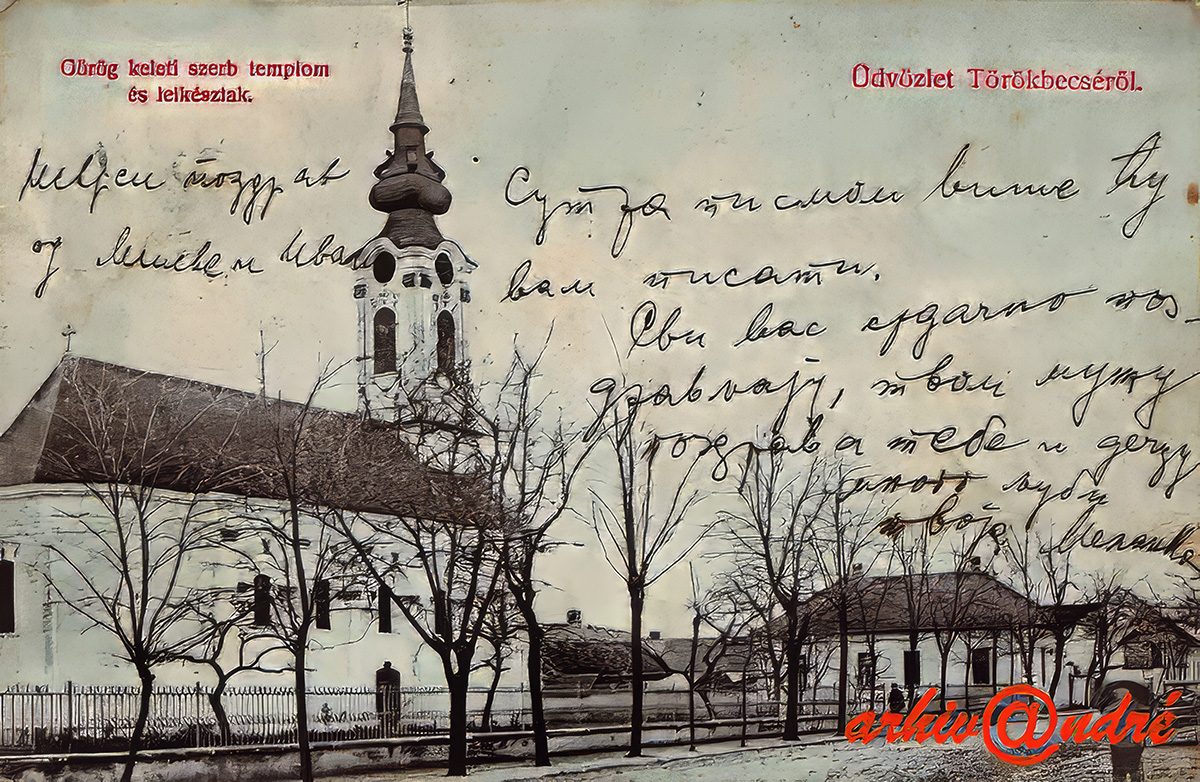 Görög keleti szerb templom
és lelkészlak.
Üdvözlet Törökbecséről.
поздрав
од Иван
Сутра писмом више ћу
вам писати.
Сви вас срдачно поз-
драв твом мужу
поздрав а тебе и децу
много љуби
твоја Меланка
arhiv@ndré